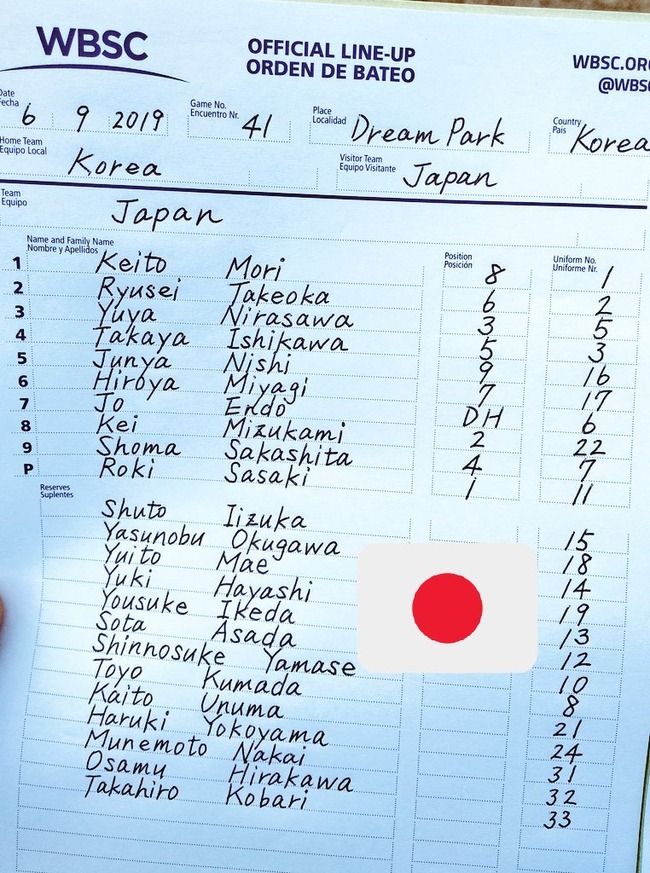 WBSC
OFFICIAL LINE-UP
ORDEN DE BATEO
WBSC.OR
@WBS
Date
Fecha
6 9 2019
Game No.
Encuentro Nr.
41
Place
Localidad
Dream Park
Country
País
Korea
Home Team
Equipo Local
Korea
Visitor Team
Equipo Visitante
Japan
Team
Equipo
Japan
Name and Family Name
Nombre y Apellidos
Position
Posición
Uniform No.
Uniforme Nr.
1 Keito Mori 8 1
2 Ryusei Takeoka 6 2
3 Yuya Nirasawa 3 5
4 Takaya Ishikawa 5 3
5 Junya Nishi 9 16
6 Hiroya Miyagi 7 17
7 Jo Endo DH 6
8 Kei Mizukami 2 22
9 Shoma Sakashita 4 7
P Roki Sasaki 1 11
Reserves
Suplentes
Shuto Iizuka 15
Yasunobu Okugawa 18
Yuito Mae 14
Yuki Hayashi 19
Yousuke Ikeda 13
Sota Asada 12
Shinnosuke Yamase 10
Toyo Kumada 8
Kaito Unuma 21
Haruki Yokoyama 24
Munemoto Nakai 31
Osamu Hirakawa 32
Takahiro Kobari 33